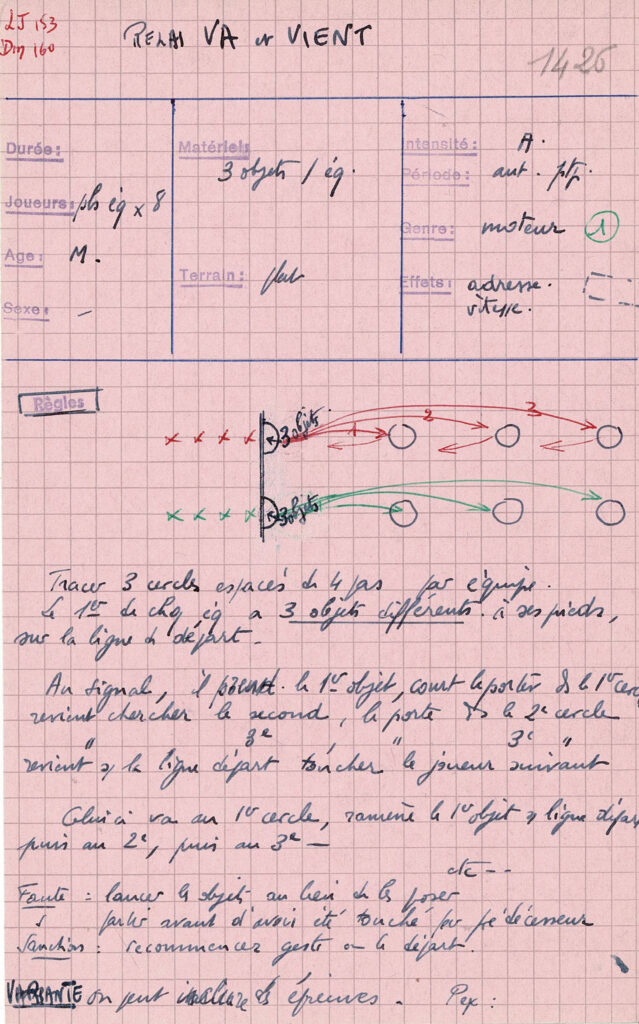 LJ 153
Din 160
RELAI VA et VIENT
1426
Durée:
Joueurs: pls éq x 8
Age: M.
Sexe: -
Matériel:
3 objets / éq.
Terrain: plat
Intensité: A.
Période: aut. ptps.
Genre: moteur 1
Effets: adresse.
vitesse.
Règles
3 objets 1 2 3
3 objets
Tracer 3 cercles espacés de 4 pas par équipe.
Le 1er de chq éq a 3 objets différents à ses pieds,
sur la ligne de départ.
Au signal, il prend le 1er objet, court le porter ds le 1er cerc
revient chercher le second, le porte ds le 2e cercle
" 3e " 3e "
revient s/ la ligne départ toucher le joueur suivant
Celui ci va au 1er cercle, ramène le 1er objet s/ ligne dépar
puis au 2e, puis au 3e —
etc - -
Faute : lancer les objets au lieu de les poser
partir avant d'avoir été touché par prédécesseur
Sanctions : recommencer geste ou le départ.
VARIANTE on peut inclure des épreuves. P ex :